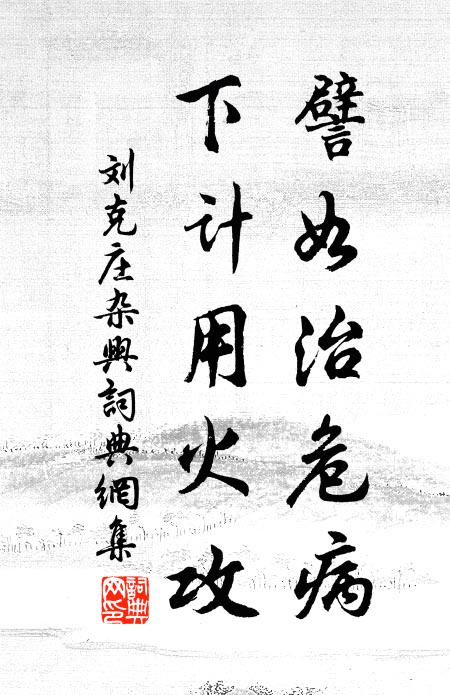 譬如治危病
下计用火攻
刘克庄杂興詞典網集
詞典網印